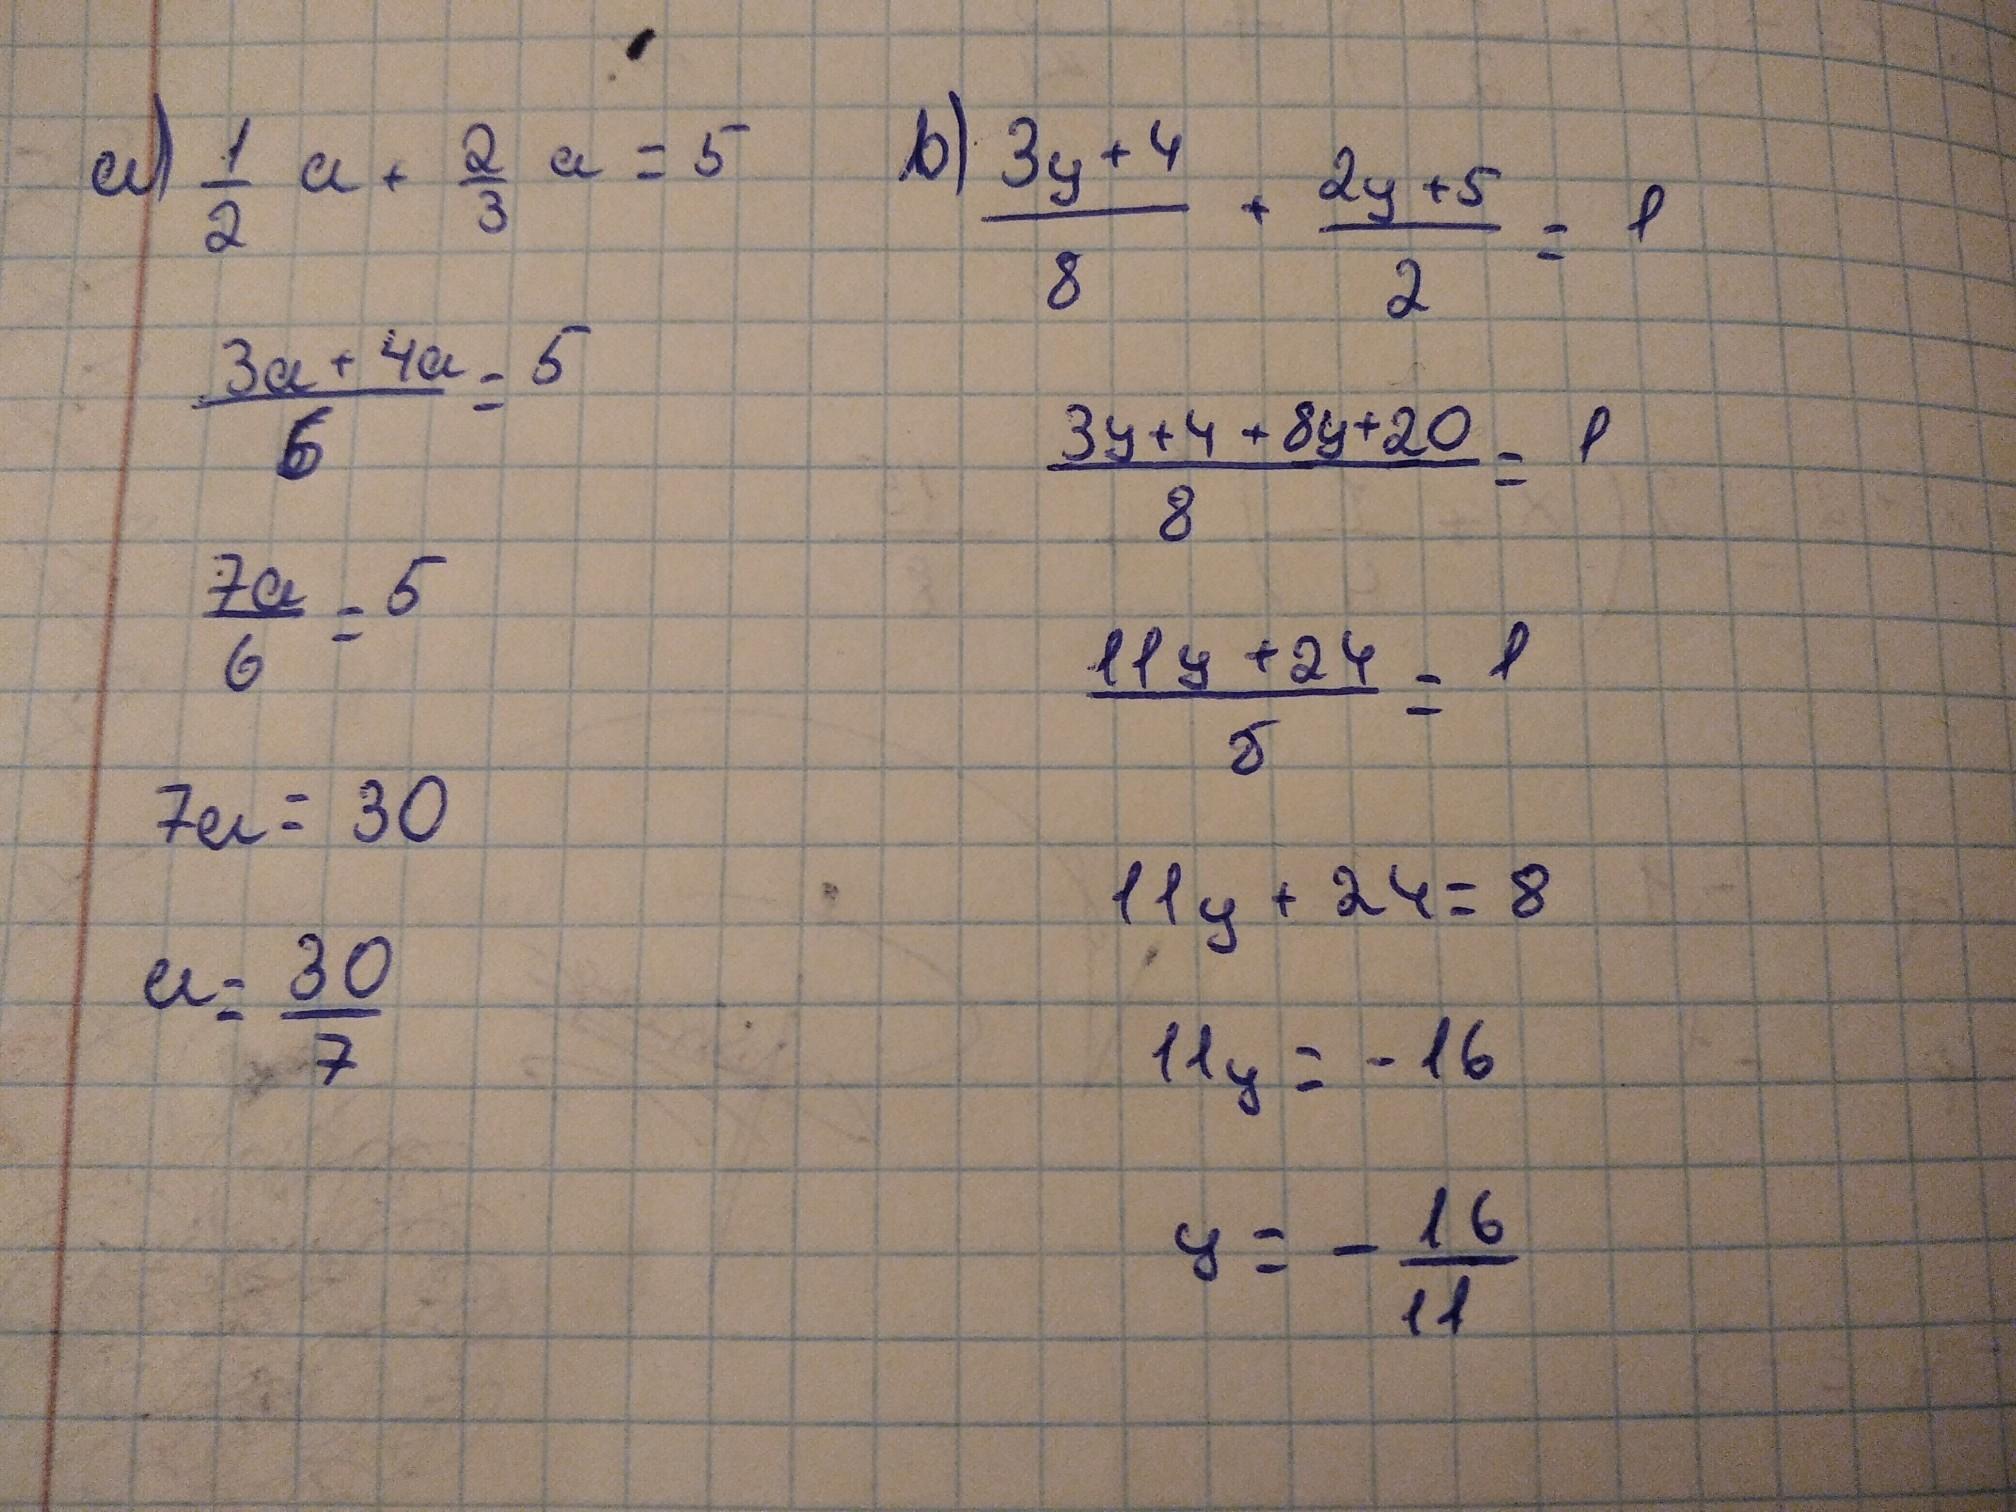 a) 1/2 a + 2/3 a = 5
(3a + 4a)/6 = 5
7a/6 = 5
7a = 30
a = 30/7
b) (3y + 4)/8 + (2y + 5)/2 = 1
(3y + 4 + 8y + 20)/8 = 1
(11y + 24)/8 = 1
11y + 24 = 8
11y = -16
y = - 16/11